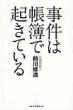 事件は
帳簿で
起きている
前川修満